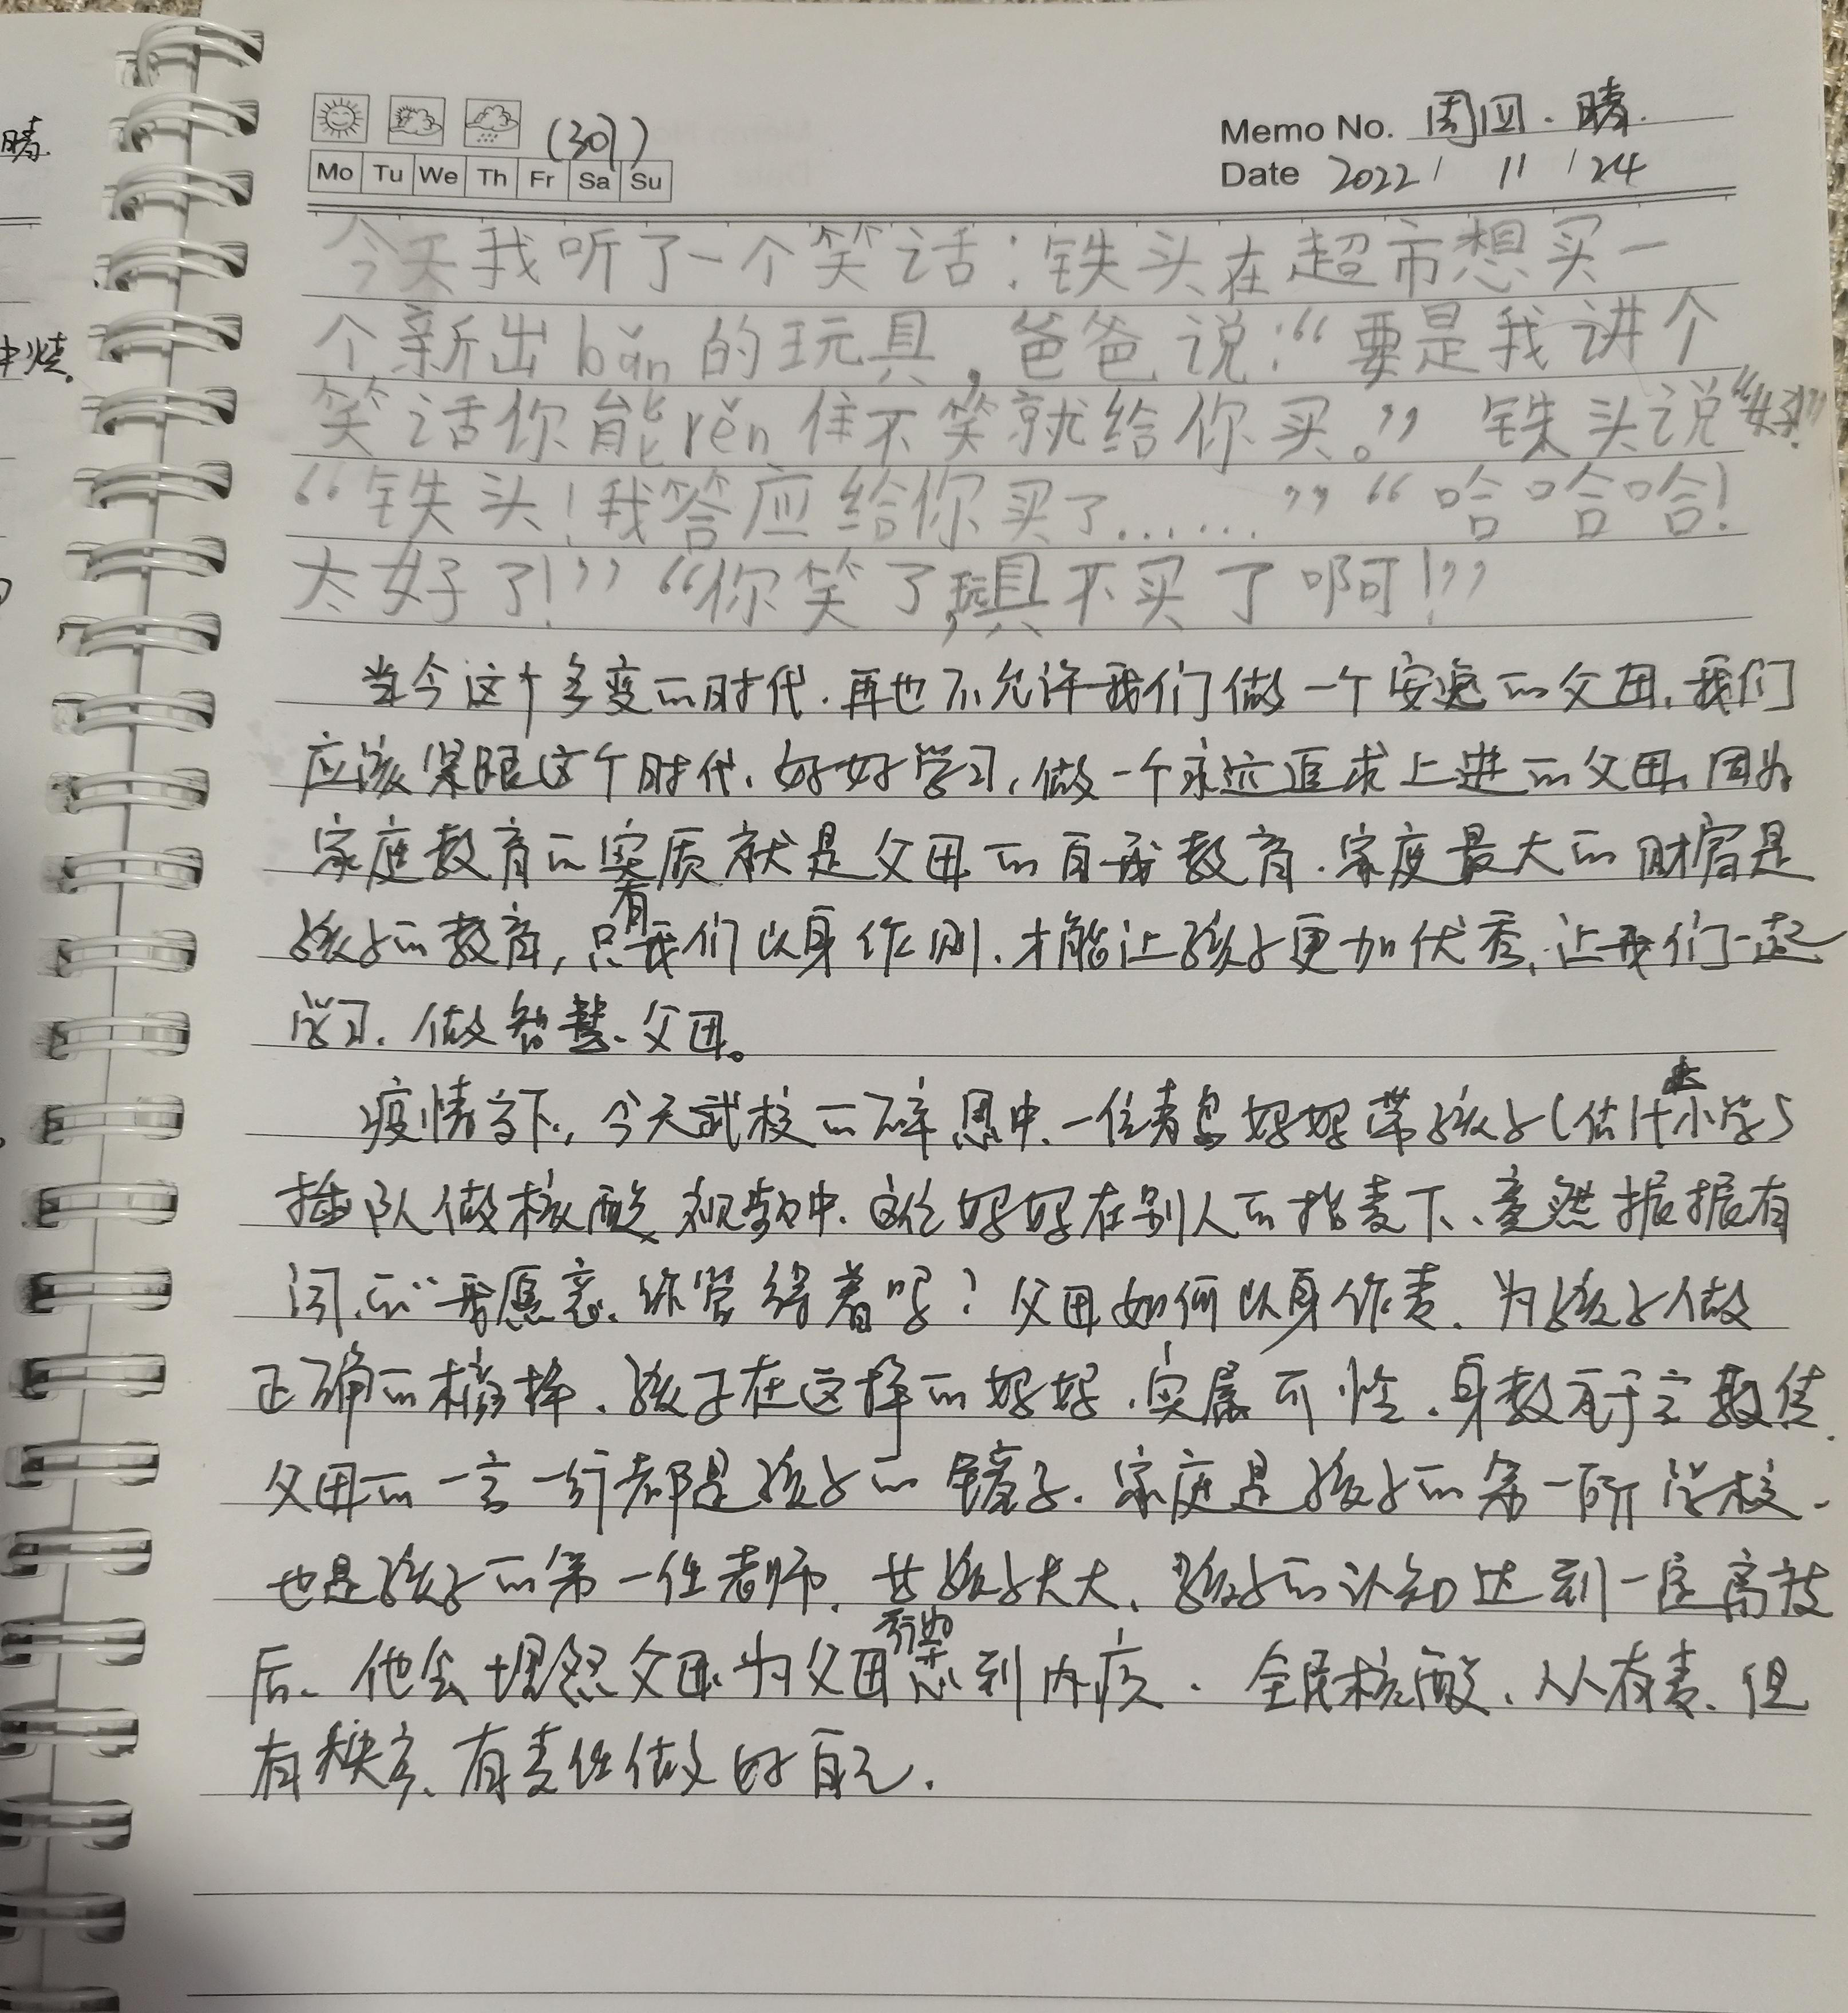 晴
(30')
Memo No. 周四·晴.
Mo Tu We Th Fr Sa Su
Date 2022 / 11 / 24
今天我听了一个笑话：铁头在超市想买一
个新出bǎn的玩具，爸爸说：“要是我讲个
笑话你能rěn住不笑就给你买。” 铁头说“好”
“铁头！我答应给你买了……”“哈哈哈！
太好了！”“你笑了，玩具不买了啊！”
当今这个多变的时代.再也不允许我们做一个安逸的父母.我们
应该紧跟这个时代.好好学习,做一个永远追求上进的父母.因为
家庭教育的实质就是父母的自我教育.家庭最大的财富是
孩子的教育,只有我们以身作则.才能让孩子更加优秀.让我们一起
学习.做智慧父母。
疫情当下,今天武校的 中.一位青岛妈妈带孩子(估计 小学)
插队做核酸.视频中.这位妈妈在别人的指责下.竟然振振有
词.的“我愿意.你管得着吗？父母如何以身作责.为孩子做
正确的榜样.孩子在这样的妈妈.实属可 .身教 于言教 
父母的一言一行都是孩子的镜子.家庭是孩子的第一所学校.
也是孩子的第一任老师. 孩子长大.孩子的认知达到一定高度
后.他会埋怨父母.为父母行为感到内疚.全民核酸.人人有责.但
有秩序.有责任做好自己.